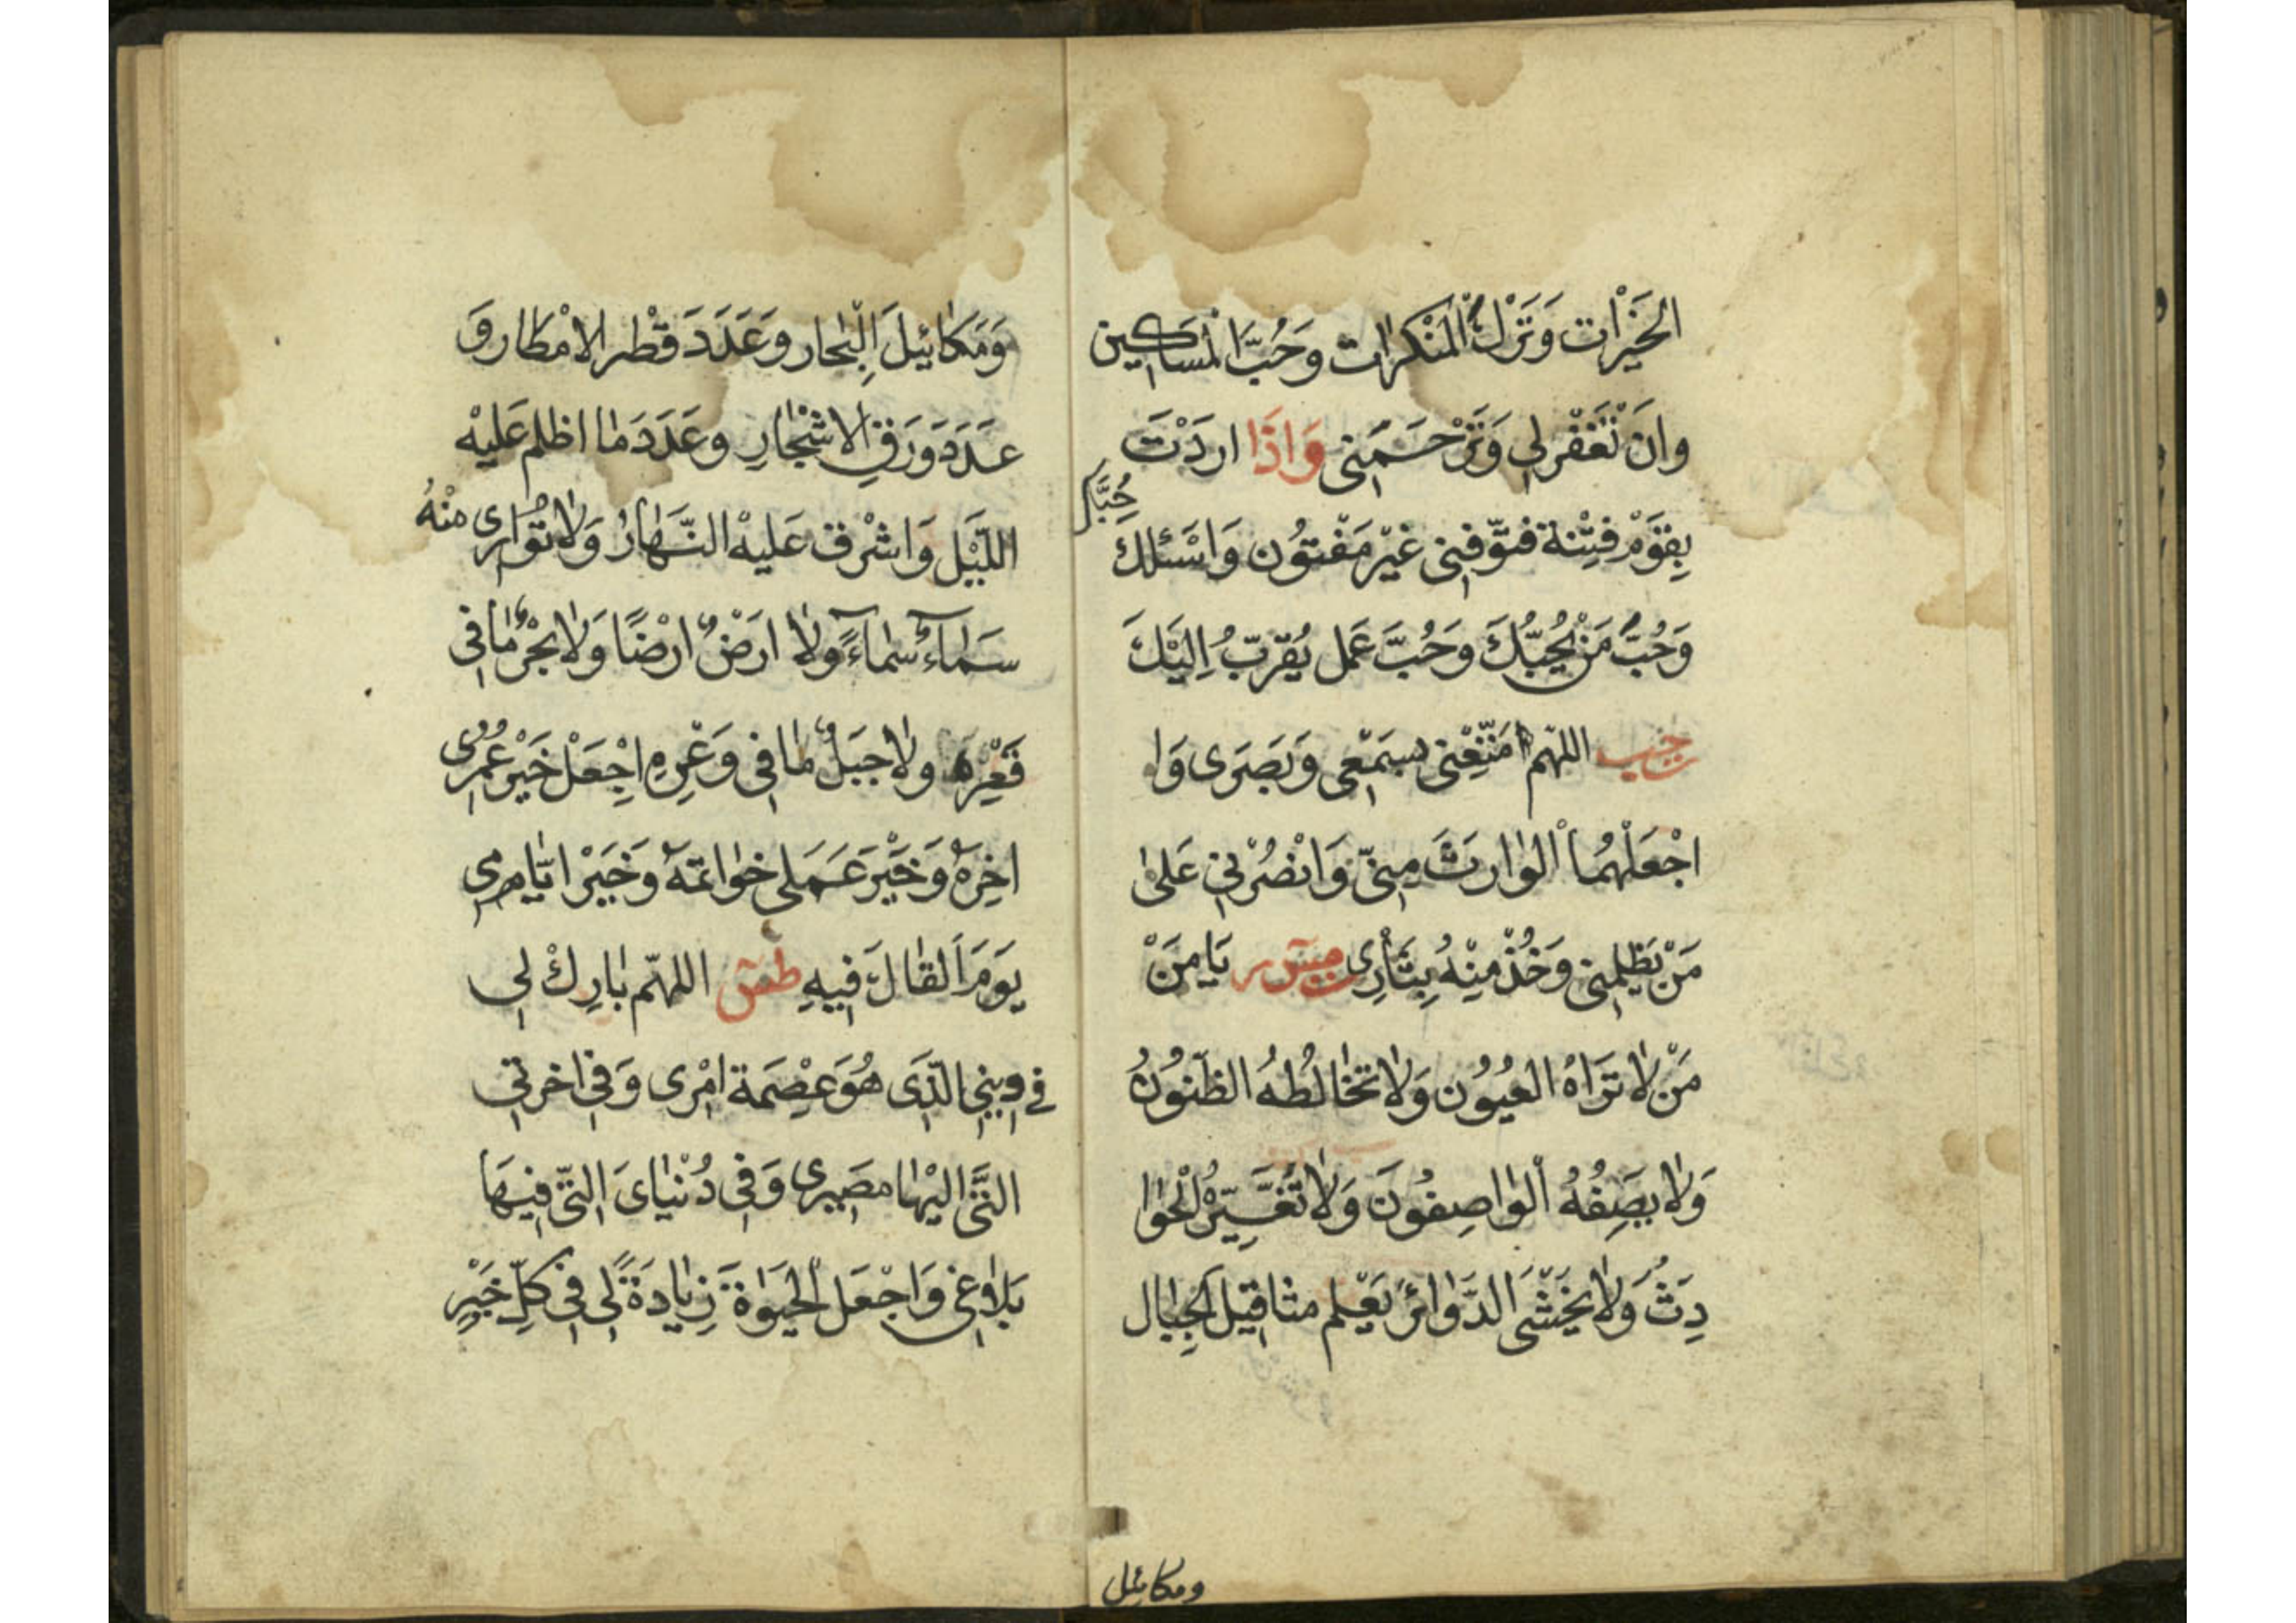 الخَيْرات وَتَرْكَ الْمُنْكَرات وَحُبَّ الْمَسَاكِين
وَانْ تَغْفِرلِى وَتَرْحَمَنِى وَاذَا اَرَدْتَ
بِقَوْمٍ فِتْنَة فتوّفنِى غَيْر مَفْتوُن وَاَسْئلكَ حُبَّكَ
وَحُبَّ مَنْ يُحِبُّكَ وَحُبَّ عَمل يُقرّبُ اِلَيْكَ
اللهّم مَتّعْنى بسَمْعى وَبَصَرى وَا
اجْعَلْهُمَا الْوٰارِثَ مِنّى وَانْصُرْنِى عَلىٰ
مَنْ يَظْلمنِى وَخُذْ مِنْهُ بِثَأْرِى يَا مَنْ
مَنْ لاٰ تَرَاهُ العُيوُن وَلاٰ تخٰالطُهُ الظّنوُنُ
وَلاٰ يَصِفُهُ الْوٰاصِفوُنَ وَلاٰ تُغَيّرُهُ الْحَوٰا
دِثُ وَلاٰ يَخْشَى الدَّوٰائرَ يَعْلم مثاقيل الْجِبٰال
ومكائيل
وَمَكٰائيلَ الْبِحٰار وَعَدَدَ قَطْر الامْطٰار وَ
عَدَدَ وَرَقِ الاَشْجٰارِ وعَدَدَ مٰا اظلم عَليْه
اللّيْل وَاشْرق عَليْه النّهٰارُ وَلاٰ توُارى منْهُ
سَمٰاءٌ سَمٰاءً وَلاٰ ارَضٌ ارْضًا وَلاٰ بَحْرٌ مٰا فى
قَعْرِه ولاٰ جبَلٌ مٰا فى وَعْرِهِ اِجْعَلْ خَيْر عُمُرى
اخِرهُ وَخَيْرَ عَمَلى خوٰاتمَهُ وَخَيْرَ ايّٰامِى
يوَمَ الَقٰاكَ فيهِ اللهّم بٰارِكْ لى
فى دينى الّذى هُوَ عِصْمَة امْرى وَفى اخرتى
الَتّى اليْهٰا مَصيرى وَفى دُنْيٰاىَ الّتى فيهَا
بَلاٰغى وَاجْعَل الْحَيٰوةَ زِيٰادَةً لى فى كلِّ خَيْرٍ